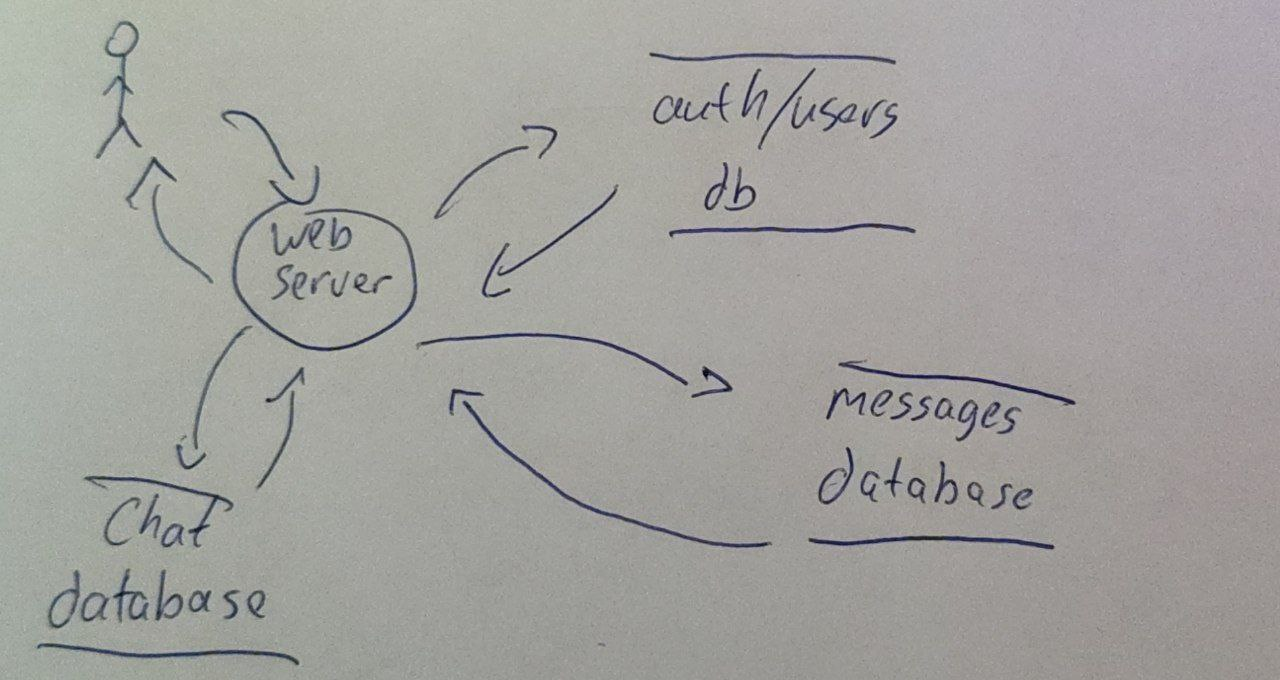 auth/users
db
web
server
messages
database
Chat
database